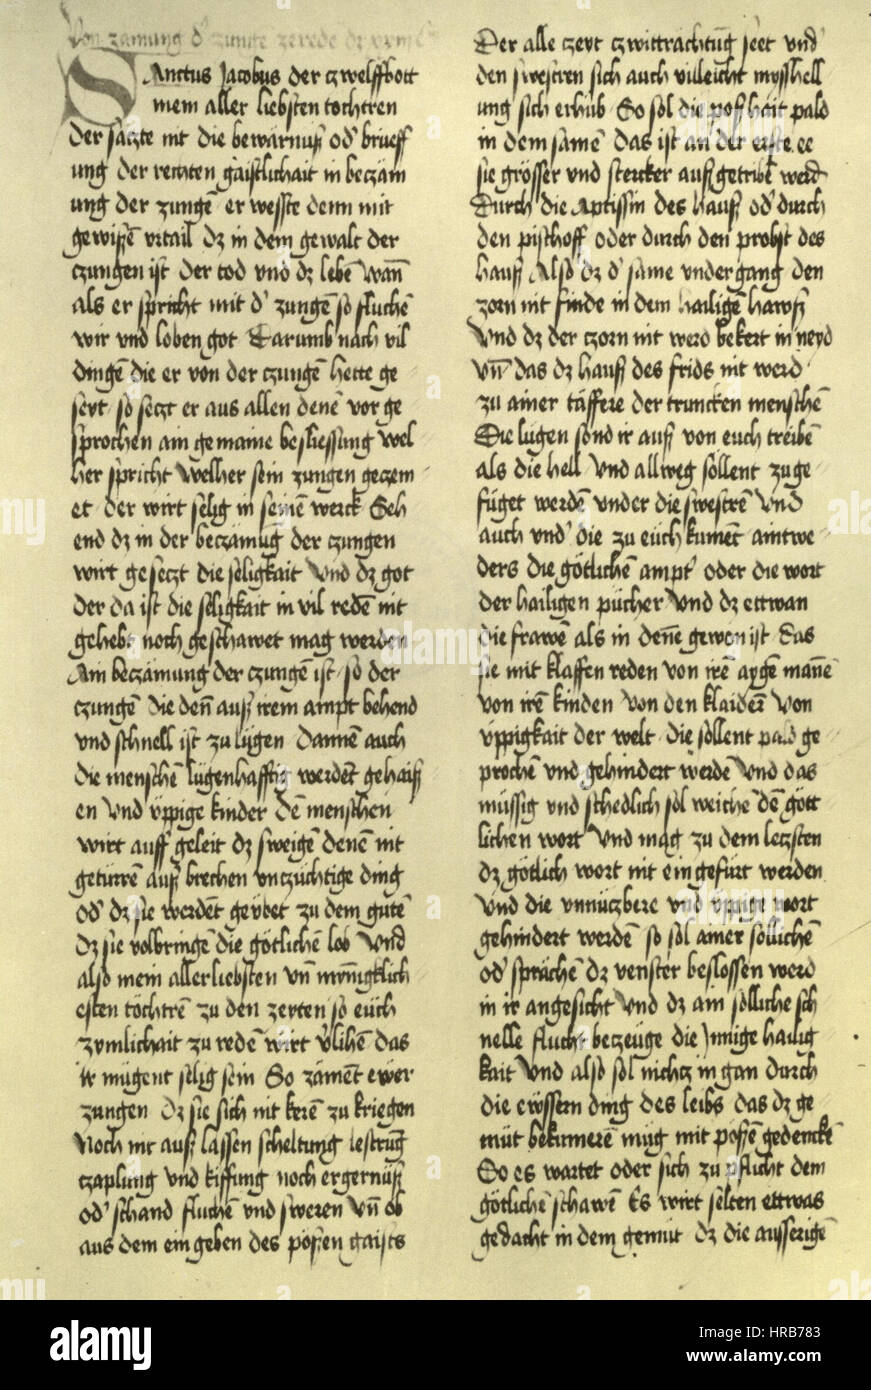 Von zamung d' zunge
SAnctus Jacobus der czwelffbott
mein aller liebsten tochtren
der säczte nit die bewärnuß od' brueff
ung der rechten gaistlichait in beczäm
ung der zungē er wesste denn mit
gewißem vrtail dz in dem gewalt der
czungen ist der tod vnd dz lebē wañ
als er spricht mit d' zungē so fluchen
wir vnd loben got Darumb nach vil
dingē die er von der czungē hette ge
seyt so seczt er aus allen denē vor ge
sprochen ain gemaine besliessung wel
her spricht Welher sein zungen geczem
et der wirt selig in seinē werck Seh
end dz in der beczämūg der czungen
wirt geseczt die seligkait Vnd dz got
der da ist die seligkait in vil redē nit
gehebt noch geschawet mag werden
Ain beczämung der czungē ist so der
czungē die deñ auß irem ampt behend
vnd schnell ist zu lügen dannen auch
die menschē lügenhafftig werdēt gehaiß
en Vnd üppige kinder Dē menschen
wirt auff geleit dz sweigē denē nit
getürrē auß brechen vnczüchtige ding
od' dz sie werdēt geübet zu dem gutē
dz sie volbringē die götlichen lob Vnd
also mein allerliebsten vñ
esten töchtrē zu den zeyten so eüch
zymlichait zu redē wirt v'lihē das
ir mügent selig sein So zämēt ewer
zungen dz sie sich nit kerē zu kriegen
Noch nit auß lassen scheltung
vnd kiffung noch ergernuß
od' schand fluchē vnd sweren vñ ob
aus dem eingeben des poßen gaists
Der alle zeyt zwittrachtūg seet vnd
den swestren sich auch villeicht myshell
ung sich erhub So sol die poßhait pald
in dem samē das ist an der erste ee
sie grösser vnd stercker außgetribē werd
Durch die Aptissin des hauß od' durch
den pischoff oder durch den probst des
hauß Also dz d' same vndergang den
zorn nit finde in dem hailigē hawß
Vnd dz der czorn nit werd bekert in neyd
Vñ das dz hauß des frids nit werd
zu ainer täffere der truncken menschē
Die lügen sond ir auß von euch treibē
als die hell Vnd allweg söllent zuge
füget werdē vnder die swestrē Vnd
auch vnd' die zu eüch kumēt aintwe
ders die götlichē ampt oder die wort
der hailigen pücher Vnd dz ettwan
die frawē als in denē gewonist das
sie mit klaffen reden von irē aygē mānē
von irē kinden von den klaidern von
üppigkait der welt die söllent pald ge
prochen vnd gehindert werdē Vnd das
müssig vnd schedlich sol weichē dē gött
lichen wort Vnd mag zu dem leczsten
dz götlich wort nit eingefürt werden
Vnd die vnnüczbere vnd üppige wort
gehindert werdē so sol ainer söllichen
od' sprächē dz venster beslossen werd
in ir angesicht Vnd dz ain sölliche sch
nelle flucht beczeüge die Jnnige hailig
kait Vnd also sol nichcz in gan durch
die eüssern ding des leibs das dz ge
müt bekumerē müg mit poßē gedencke
So es wartet oder sich zu pflicht dem
götlichē schawē Es wirt selten ettwas
gedacht in dem gemüt dz die ausserigē
alamy stock photo
HRB783
www.alamy.com